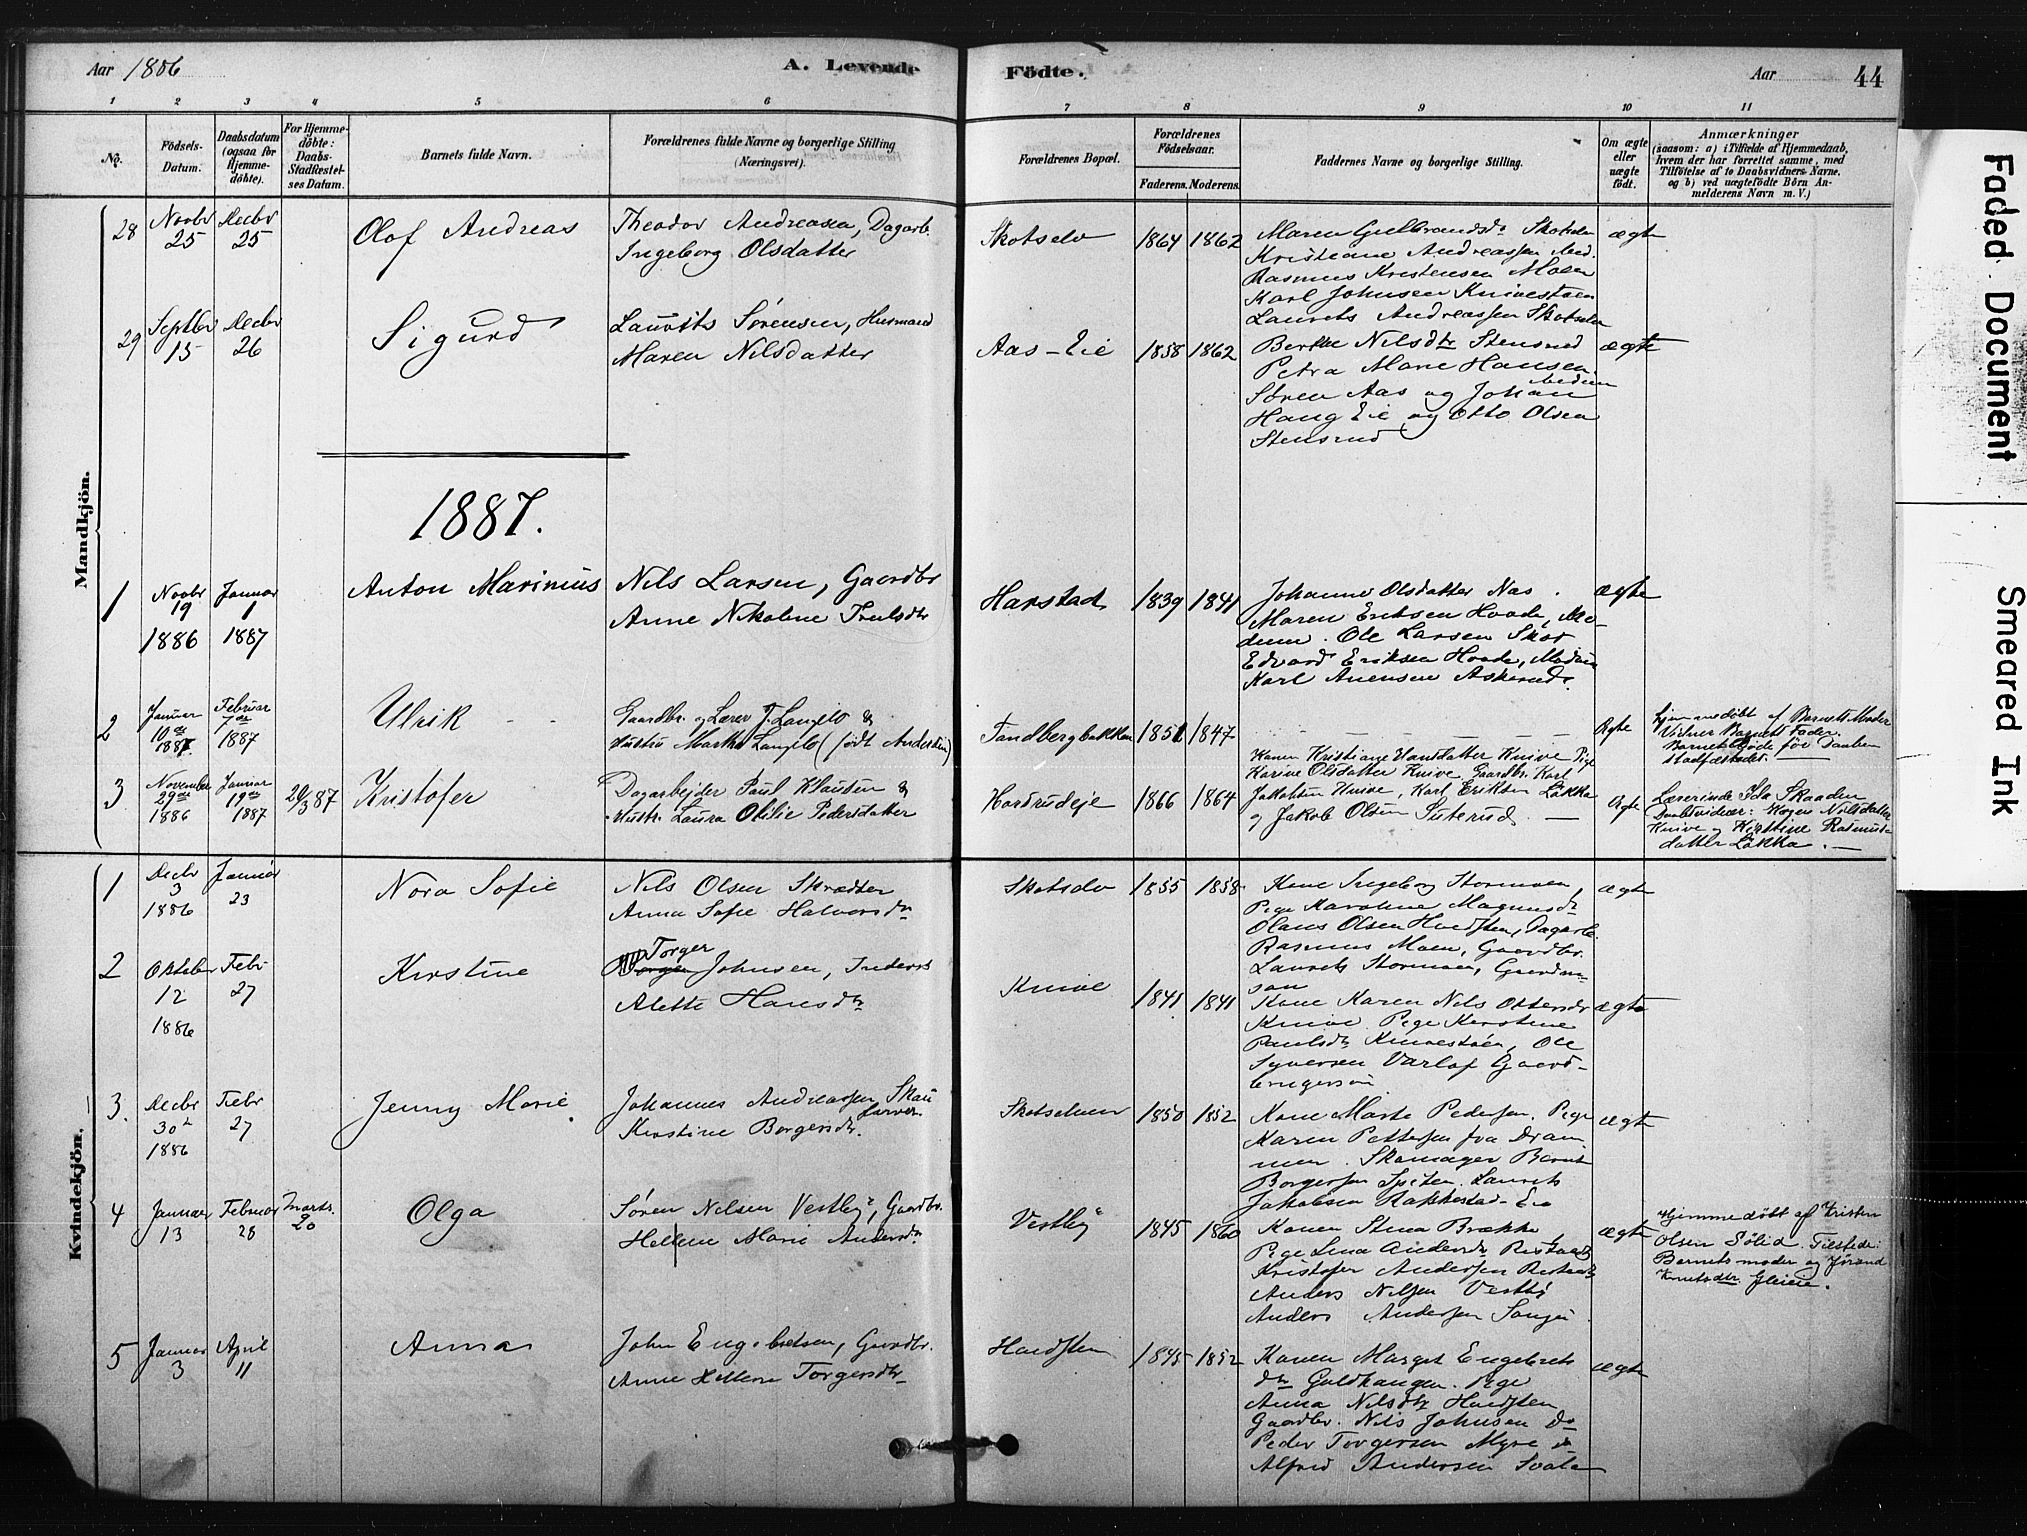 Aar 1886
A. Levende
Födte.
Aar
44
1 2 3 4 5 6 7 8 9 10 11
No.
Födsels-Datum.
Daabsdatum (ogsaa for Hjemme-döbte).
For Hjemme-döbte: Daabs-Stadfæstel-ses Datum.
Barnets fulde Navn.
Forældrenes fulde Navne og borgerlige Stilling (Næringsvei).
Forældrenes Bopæl.
Forældrenes Födselsaar.
Faderens. Moderens.
Faddernes Navne og borgerlige Stilling.
Om ægte eller uægte födt.
Anmærkninger
(saasom: a) i Tilfælde af Hjemmedaab,
hvem der har forrettet samme, med
Tilföielse af to Daabsvidners Navne,
og b) ved uægtefödte Börn An-
melderens Navn m. V.)
Mandkjön.
28 Novbr 25 Decbr 25 Olaf Andreas
Theodor Andreasen, Dagarb.
Ingeborg Olsdatter
Skotselv 1864 1862
Maren Gulbrandsdr Skotselv
Kristiane Andreassen
Rasmus Kristensen Moen
Karl Johnsen Knivestøen
Laurits Andreassen Skotselv
ægte
29 Septbr 15 Decbr 26 Sigurd
Laurits Sørensen, Husmand
Maren Nilsdatter
Aas-Eie 1858 1862
Berthe Nilsdtr Stensrud
Petra Marie Hansen
Søren Aas og Johan
Haug Eie og Otto Olsen
Stensrud
ægte
1887.
1 Novbr 19 1886 Januar 1 1887 Anton Marinius
Nils Larsen, Gaardbr
Anne Nikoline Truls dtr
Harstad 1839 1841
Johanne Olsdatter Næs.
Maren Eriksen Hoade, Mo-
dum. Ole Larsen Skot
Edvard Eriksen Hoade, Modum
Karl Anensen Askerud.
ægte
2 Januar 10de 1887. Februar 7de 1887 Ulrik
Gaardbr. og Lærer J. Langslo &
Hustru Martha Langslo (født Andersen)
Tandbergbakken 1851 1847
Ægte
Hjemmedøbt af Barnets Moder
Vidner Barnets Fader.
Barnet døde før Daaben
stadfæstedes.
3 November 29de 1886 Januar 19de 1887 20/3 87 Kristofer
Dagarbejder Paul Klausen &
Hustr. Laura Otilie Pedersdatter
Hordrudeje 1866 1864
Konen Kristiane Hansdatter Knive Pige
Karine Olsdatter Knive, Gaardbr. Karl
Jakobsen Knive, Karl Eriksen Løkka
og Jakob Olsen Suterud.
Ægte
Lærerinde Ida Skaaden
Daabsvidner: Karen Nilsdatter
Knive og Kristine Rasmus-
datter Løkka.
Kvindekjön.
1 Decbr 3 1886 Januar 23 Nora Sofie
Nils Olsen Skrædder
Anna Sofie Halvorsdr
Skotselv 1855 1858
Kone Ingeborg Stormoen,
Pige Karoline Magnusdr
Olaus Olsen Hordsten, Dagarb.
Rasmus Moen, Gaardbr.
Laurits Stormoen, Gaardm-
søn
ægte
2 Oktober 12 1886 Febr 27 Kirstine
Torger
Johnsen, Inderst
Alette Hansdr
Knive 1841 1841
Kone Karen Nils Ottersdr
Knive. Pige Kirstine
Paulsdr Knivestøen, Ole
Syversen Varlof Gaard-
brugersøn
ægte
3. Decbr 30 1886 Febr 27 Jenny Marie.
Johannes Andreassen, Skau
farver.
Kirstine Borgersdr.
Skotselven 1850 1852
Kone Marte Pedersen. Pige
Karen Pettersen fra Dram
men. Skomager Bernt
Borgersen Spiten. Laurits
Jakobsen Rakkestad-Eie
ægte
4 Januar 13 Februar 28 Marts. 20 Olga
Søren Nilsen Vestby, Gaardbr.
Hellene Marie Andersdr
Vestby 1845 1860
Konen Stina Brække,
Pige Lina Andersdr
Kristofer Andersen
Anders Nilsen Vestby
Anders Andersen
ægte
Hjemmedøbt af Kristen
Olsen Sølid. Tilstede:
Barnets moder og Jørand
Knutsdtr. Gleine.
5 Januar 3 April 11 Anna
John Engebretsen, Gaardbr.
Anne Helene Torgersdtr
Hordsten 1845 1852
Konen Marget Engebrets
dtr Guldhaugen. Pige
Anna Nilsdtr Hordsten
Gaardbr. Nils Johnsen Do
Peder Torgersen Myre
Alfred Andersen
ægte
Faded Document
Smeared Ink